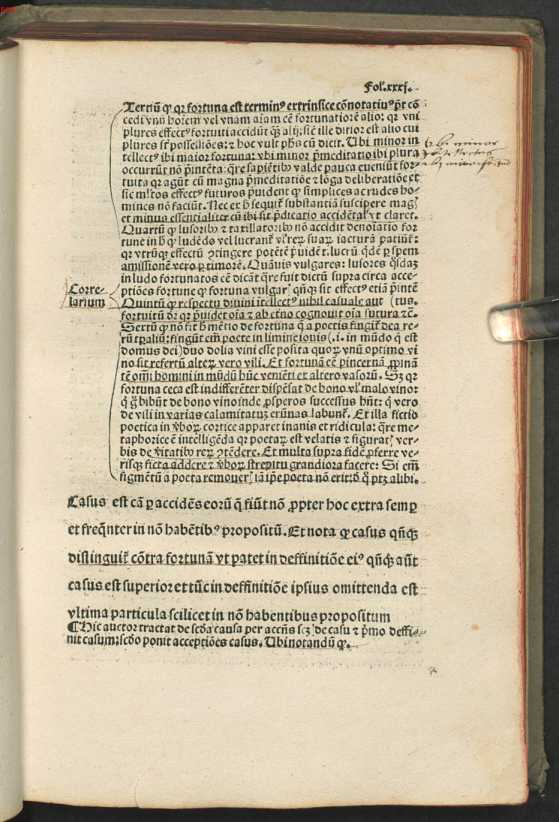 Fol. xxxj.
Tertiū ꝙ qꝛ fortuna est terminꝰ extrinsice cōnotatiuꝰ pt cō
cedi vnū hoīem vel vnam aīam eē fortunatiorē alio: qꝛ vni
plures effectꝰ fortuiti accidūt ꝙ alij: sic ille ditior est alio cui
plures st possessiōes: ⁊ hoc vult phs cū dicit. Ubi minor in
tellectꝰ ibi maior fortuna: vbi minor pmeditatio ibi plura
occurrūt nō pintēta: qre sapiētibꝰ valde pauca eueniūt for-
tuita qꝛ agūt cū magna pmeditatiōe ⁊ lōga deliberatiōe et
sic mltos effectꝰ futuros puident ꝙ simplices ac rudes ho-
mines nō faciūt. Nec et h sequit substantiā suscipere magꝭ
et minus essentialiter cū ibi sit pdicatio accidētalꝭ vt claret.
Quartū ꝙ lusoribꝰ ⁊ taxillatoribꝰ nō accidit denoīatio for
tune in h ꝙ ludēdo vel lucrant vl rerꝝ suarꝝ iacturā patiūt:
qꝛ vtrūqꝫ effectū ꝯtingere potētē puidēt. lucrū qdē p spem
amissionē vero p timorē. Quāuis vulgares: lusores qsdaꝫ
in ludo fortunatos eē dicāt qre fuit dictū supra circa acce-
ptiōes fortune ꝙ fortuna vulgarꝭ qūqꝫ sit effectꝰ etiā pintē
Corre
larium
Quintū ꝙ respectu diuini ītellectꝰ nihil casuale aut (tus.
fortuitū ōr qꝛ puidet oīa ⁊ ab etno cognouit oīa futura ⁊c̄.
Sextū ꝙ nō fit h mētio de fortuna q̄ a poetis fingit dea re-
rū tpaliū: fingūt em̄ poete in limine iouis (.i. in mūdo q est
domus dei) duo dolia vini esse posita quorꝝ vnū optimo vi
no sit refertū alterꝝ vero vili. Et fortunā eē pincernā ppinā
tē om̄i homini in mūdū hūc veniēti ex altero vasorū. Sꝫ qꝛ
fortuna ceca est indifferēter dispēsat de bono vl malo vino: ⁊
q g bibūt de bono vino inde ꝓsperos successus hūt: q vero
de vili in varias calamitatū erūnas labunt. Et illa fictio
poetica in vboꝝ cortice apparet inanis et ridicula: qre me-
taphorice ē intelligēda qꝛ poetarꝝ est velatis ⁊ figuratꝭ ver-
bis de vitatibꝰ rerꝝ ꝯtēdere. Et multa supra fidē pferre ve-
risqꝫ ficta addere ⁊ vboꝝ strepitu grandiora facere: Si em̄
figmētū a poeta remoueꝭ iā ipe poeta nō erit: vt ꝙ ptꝫ alibi.
Casus est cā p accidēs eorū q̄ fiūt nō ꝓpter hoc extra semꝑ
et freqn̄ter in nō habētibꝰ propositū. Et nota ꝙ casus qn̄qꝫ
distinguit cōtra fortunā vt patet in deffinitiōe eiꝰ qn̄qꝫ aūt
casus est superior et tūc in deffinitiōe ipsius omittenda est
vltima particula scilicet in nō habentibus propositum
¶ Hic auctor tractat de scd̄a causa per accn̄s scꝫ de casu ⁊ pmo deffi-
nit casum: scd̄o ponit acceptiōes casus. Ubi notandū ꝙ.